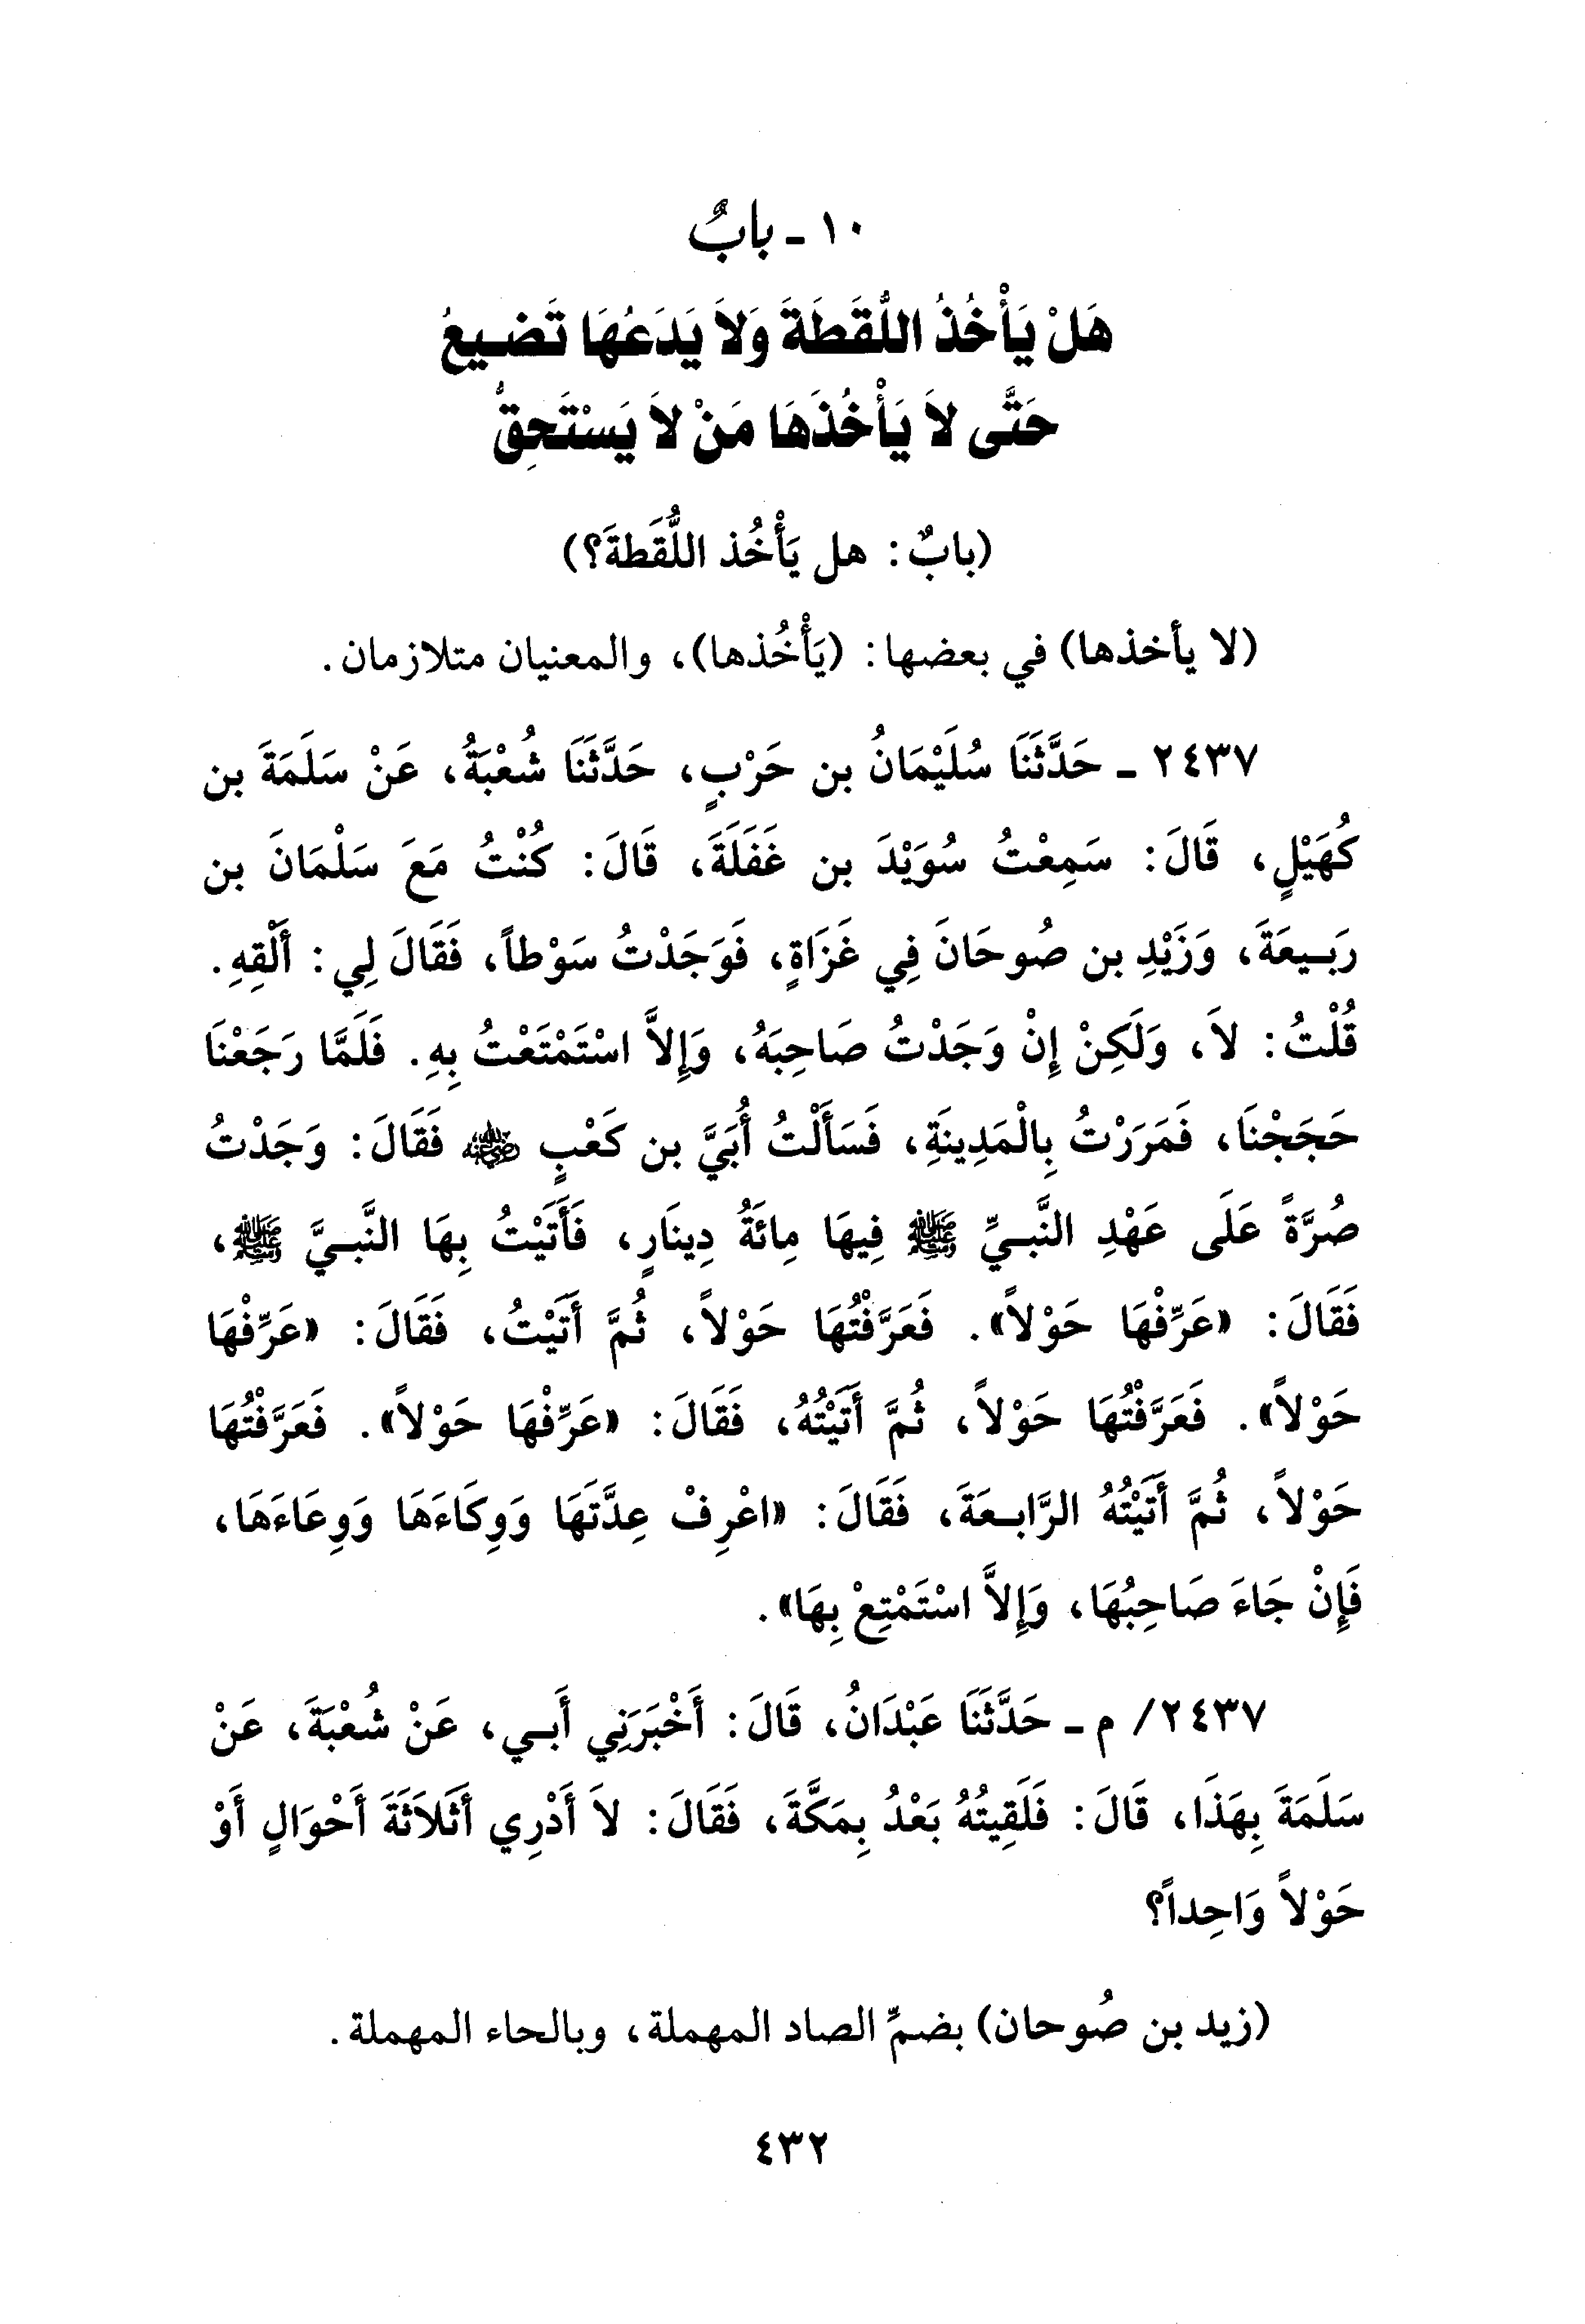 ١٠ - بابٌ
هَلْ يَأْخُذُ اللُّقَطَةَ وَلاَ يَدَعُهَا تَضيعُ
حَتَّى لاَ يَأْخُذَهَا مَنْ لاَ يَسْتَحِقُّ
(بابٌ: هل يَأْخُذ اللُّقَطةَ؟)
(لا يأخذها) في بعضها: (يَأْخُذها)، والمعنيان متلازمان.
٢٤٣٧ - حَدَّثَنَا سُلَيْمَانُ بن حَرْبٍ، حَدَّثَنَا شُعْبَةُ، عَنْ سَلَمَةَ بن
كُهَيْلٍ، قَالَ: سَمِعْتُ سُوَيْدَ بن غَفَلَةَ، قَالَ: كُنْتُ مَعَ سَلْمَانَ بن
رَبيعَةَ، وَزَيْدِ بن صُوحَانَ فِي غَزَاةٍ، فَوَجَدْتُ سَوْطاً، فَقَالَ لِي: أَلْقِهِ.
قُلْتُ: لاَ، وَلَكِنْ إِنْ وَجَدْتُ صَاحِبَهُ، وَإِلاَّ اسْتَمْتَعْتُ بِهِ. فَلَمَّا رَجَعْنَا
حَجَجْنَا، فَمَرَرْتُ بِالْمَدِينَةِ، فَسَأَلْتُ أُبَيَّ بن كَعْبٍ رضي الله عنه فَقَالَ: وَجَدْتُ
صُرَّةً عَلَى عَهْدِ النَّبيِّ ﷺ فِيهَا مِائَةُ دِينَارٍ، فَأَتَيْتُ بِهَا النَّبيَّ ﷺ،
فَقَالَ: «عَرِّفْهَا حَوْلاً». فَعَرَّفْتُهَا حَوْلاً، ثُمَّ أَتَيْتُ، فَقَالَ: «عَرِّفْهَا
حَوْلاً». فَعَرَّفْتُهَا حَوْلاً، ثُمَّ أَتَيْتُهُ، فَقَالَ: «عَرِّفْهَا حَوْلاً». فَعَرَّفْتُهَا
حَوْلاً، ثُمَّ أَتَيْتُهُ الرَّابعَةَ، فَقَالَ: «اعْرِفْ عِدَّتَهَا وَوِكَاءَهَا وَوِعَاءَهَا،
فَإِنْ جَاءَ صَاحِبُهَا، وَإِلاَّ اسْتَمْتِعْ بِهَا».
٢٤٣٧/ م - حَدَّثَنَا عَبْدَانُ، قَالَ: أَخْبَرَنِي أَبي، عَنْ شُعْبَةَ، عَنْ
سَلَمَةَ بِهَذَا، قَالَ: فَلَقِيتُهُ بَعْدُ بِمَكَّةَ، فَقَالَ: لاَ أَدْرِي أَثَلاَثَةَ أَحْوَالٍ أَوْ
حَوْلاً وَاحِداً؟
(زيد بن صُوحان) بضمِّ الصاد المهملة، وبالحاء المهملة.
٤٣٢